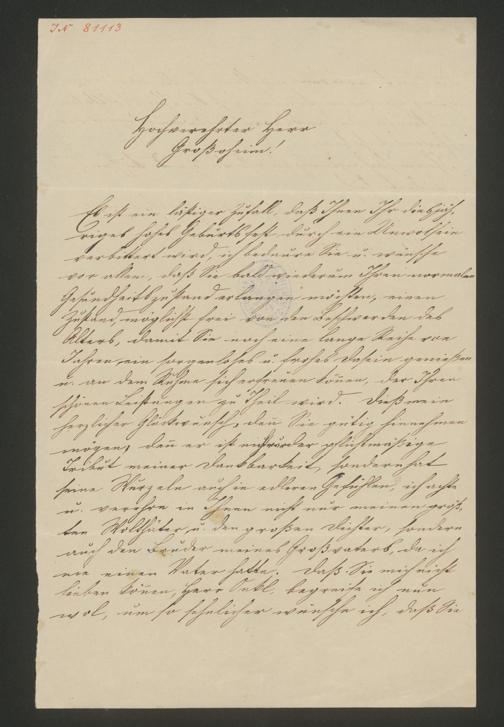 IN 81113
Hochverehrter Herr
Großoheim!
Es ist ein lästiger Zufall, daß Ihnen Ihr diesjäh-
riges hohes Geburtsfest durch ein Unwolsein
verbittert wird, ich bedaure Sie u. wünsche
vor allem, daß Sie bald wiederum Ihren normalen
Gesundheitszustand erlangen möchten, einen
Zustand, möglichst frei von den Beschwerden des
Alters, damit Sie noch eine lange Reihe von
Jahren ein sorgenloses u. frohes Dasein genießen
u. an dem Ruhme sich erfreuen können, der Ihren
schönen Leistungen zu Theil wird. Dieß mein
herzlicher Glückwunsch, den Sie gütig hinnehmen
mögen, denn er ist nicht der pflichtmäßige
Tribut meiner Dankbarkeit, sondern hat
seine Wurzeln auch in edleren Gefühlen, ich achte
u. verehre in Ihnen nicht nur meinen größ-
ten Wolthäter u. den großen Dichter, sondern
auch den Bruder meines Großvaters, da ich
nie einen Vater hatte. Daß Sie mich nicht
lieben können, Herr Onkl, begreife ich nun
wol, um so sehnlicher wünsche ich, daß Sie